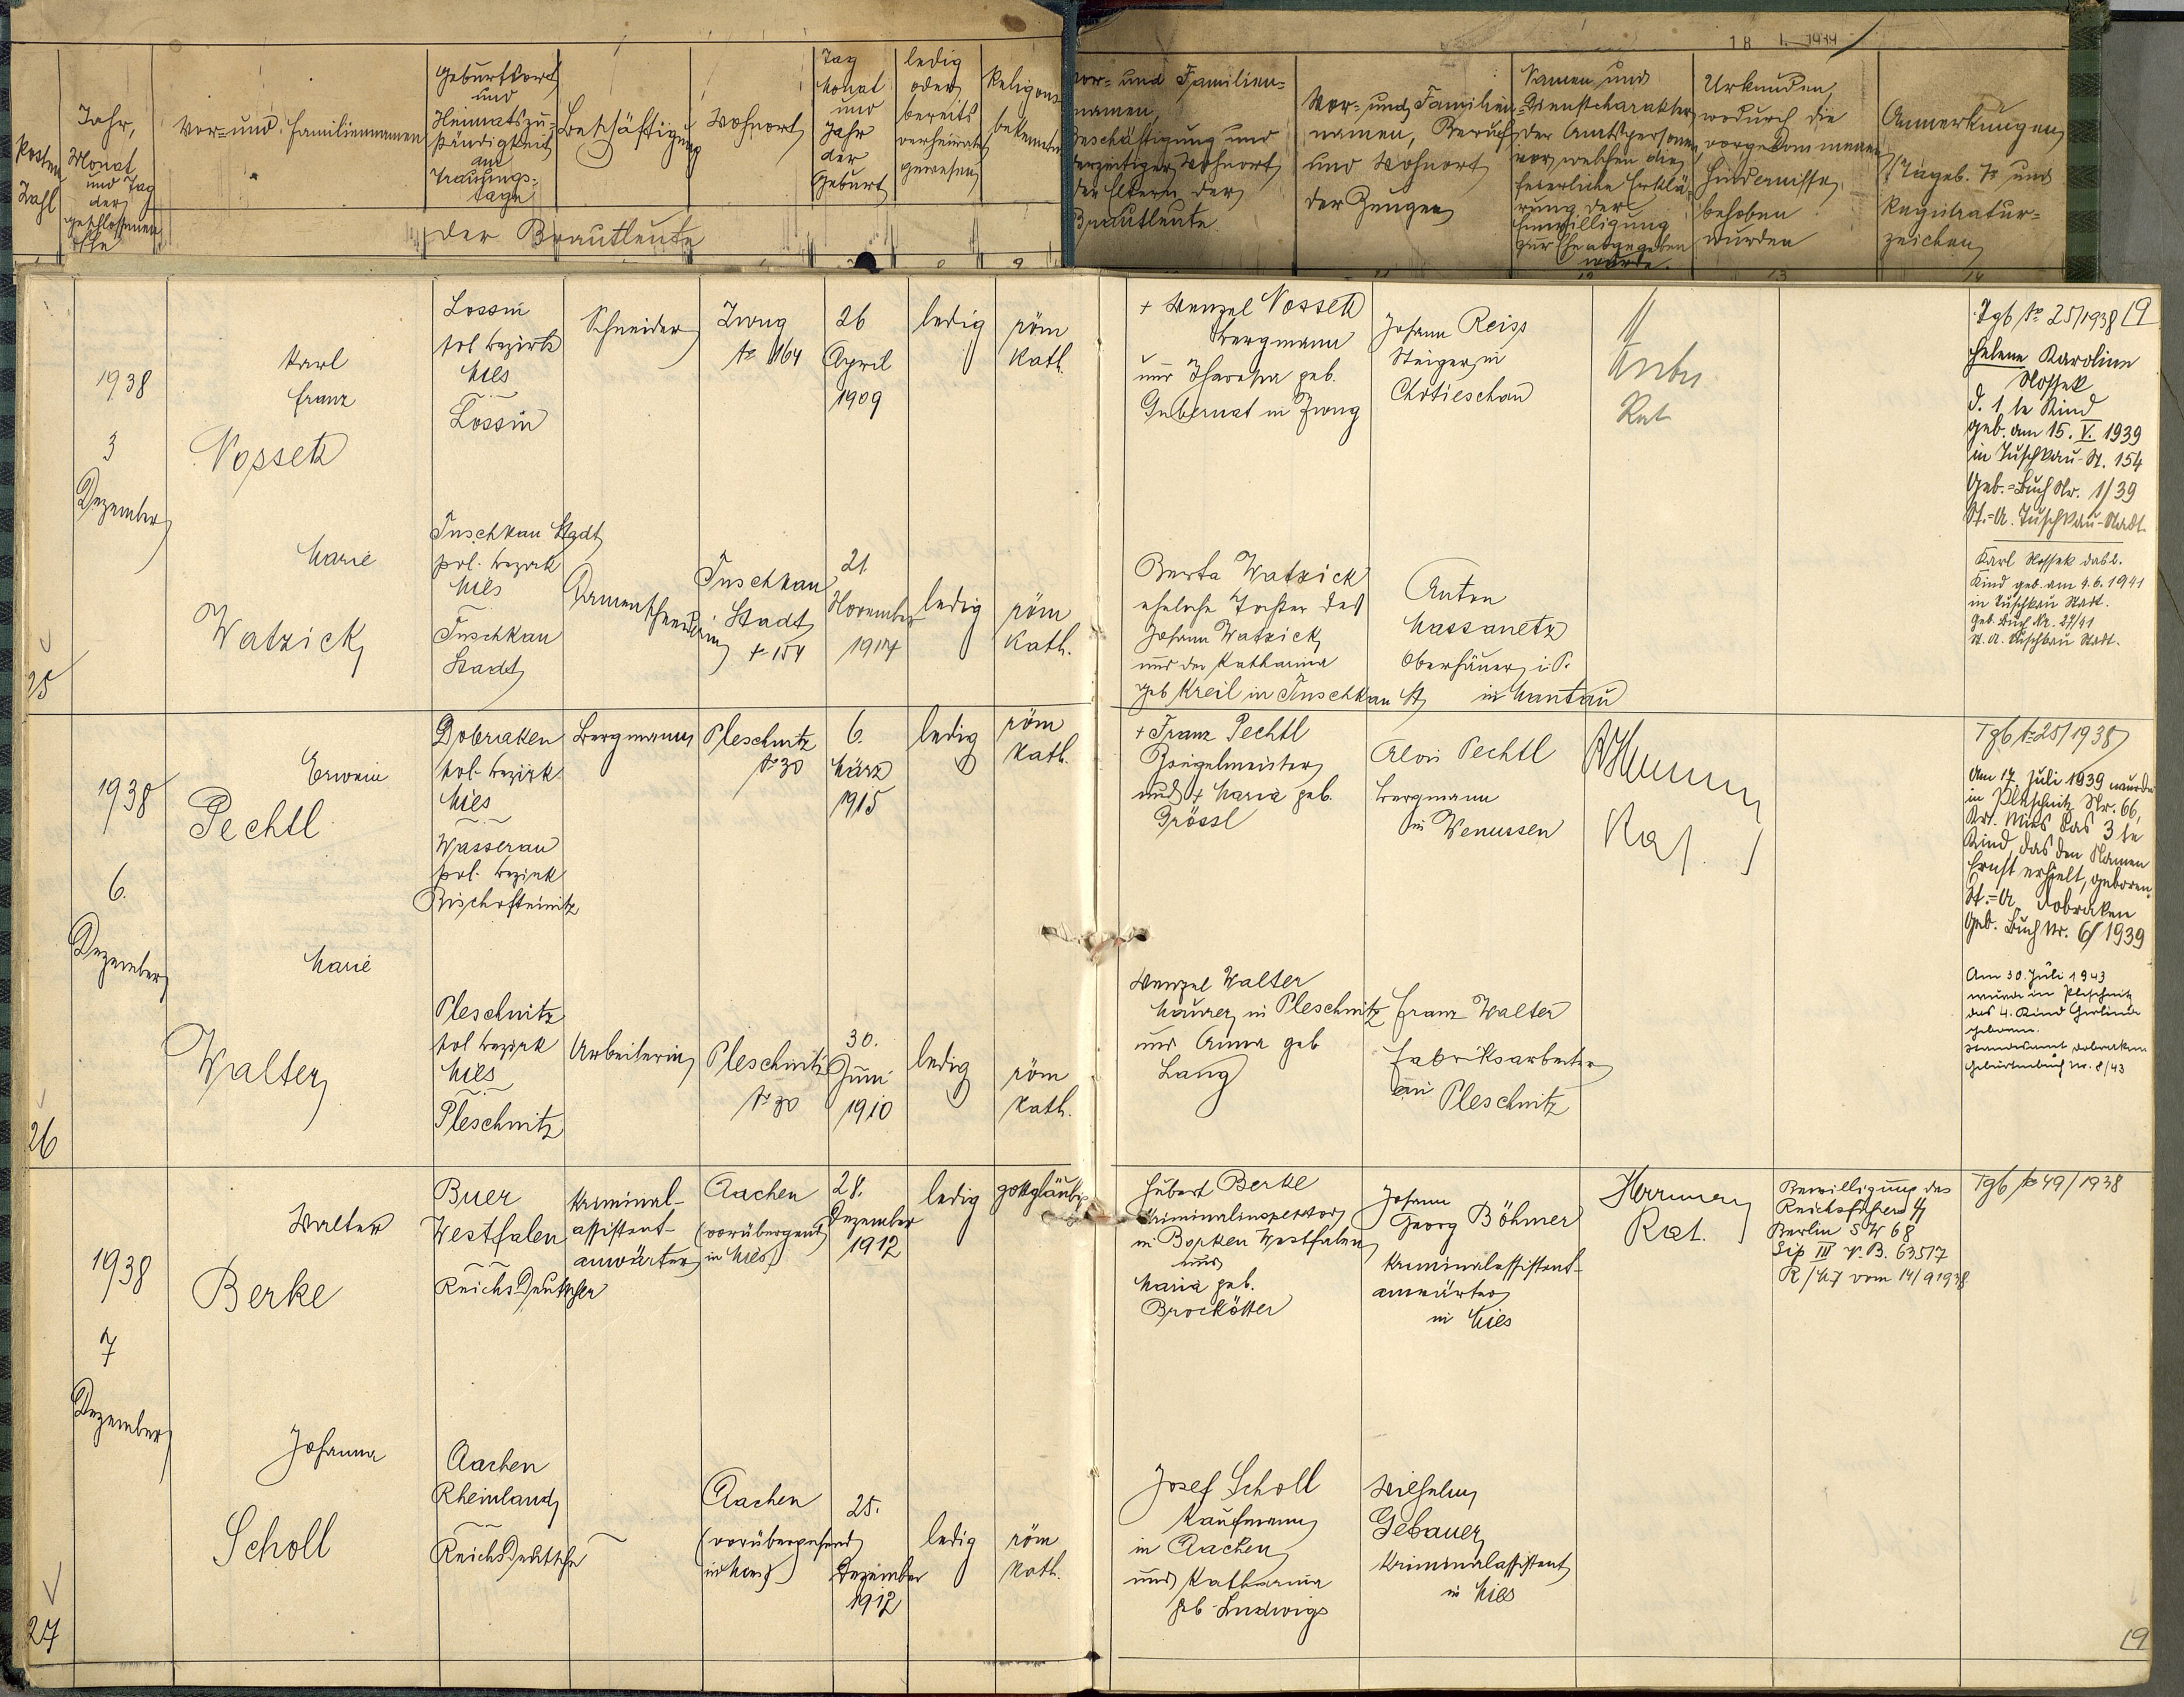 Posten
Zahl
Jahr,
Monat
und Tag
der
geschlossenen
Ehe
Vor- und Familiennamen
Geburtsort
und
Heimatszu-
ständigkeit
am
Trauungs-
tage
Beschäftigung
Wohnort
Tag
Monat
und
Jahr
der
Geburt
ledig
oder
bereits
verheiratet
gewesen
Religions
bekenntnis
der Brautleute
9
18 1. 1939
Vor- und Familien-
namen,
Beschäftigung und
derzeitiger Wohnort
der Eltern der
Brautleute
Vor- und Familien-
namen, Beruf
und Wohnort
der Zeugen
Namen und
Dienstcharakter
der Amtsperson
vor welchen die
feierliche Erklä-
rung der
Einwilligung
zur Ehe abgegeben
wurde.
Urkunden,
wodurch die
vorgekommenen
Hindernisse
behoben
wurden
Anmerkungen
(Tageb. № und
Registratur-
zeichen
12
13
14
1938
3
Dezember
25
Karl
Franz
Nossek
Lossin
pol. Bezirk
Mies
Lossin
Schneider
Zwug
№ 164
26
April
1909
ledig
röm
kath.
+ Wenzel Nossek
Bergmann
und Theresia geb.
Gubernat in Zwug
Johann Reiss
Steiger in
Chotieschau
Rat
Tgb № 25/1938
19
Helene Karoline
Nossek
d. 1te Kind
geb. am 15. V. 1939
in Tuschkau-St. 154
Geb.-Buch Nr. 1/39
St.-A. Tuschkau-Stadt
Marie
Watzick
Tuschkau Stadt
pol. Bezirk
Mies
Tuschkau
Stadt
Damenschneiderin
Tuschkau
Stadt
№ 154
21.
November
1917
ledig
röm
kath.
Berta Watzick
eheliche Tochter des
Johann Watzick
und der Katharina
geb Kreil in Tuschkau St
Anton
Massanetz
Oberhäuer i. P.
in Mantau
Karl Nossek
Kind geb. am 4.6.1941
in Tuschkau Stadt.
Geb. Buch Nr. 27/41
St. A. Tuschkau Stadt.
1938
6.
Dezember
26
Erwein
Pechtl
Dobraken
pol. Bezirk
Mies
Wasserau
pol. Bezirk
Bischofteinitz
Bergmann
Pleschnitz
№ 30
6.
März
1915
ledig
röm
kath.
+ Franz Pechtl
Ziegelmeister
und + Maria geb.
Grössl
Alois Pechtl
Bergmann
in Wenussen
Rat.
Tgb № 25/1938
Am 17. Juli 1939 wurde
in Pleschnitz Nr. 66,
Krs. Mies das 3te
Kind, das den Namen
Ernst erhielt, geboren
St.-A. Dobraken
Geb. Buch Nr. 6/1939
Marie
Walter
Pleschnitz
pol Bezirk
Mies
Pleschnitz
Arbeiterin
Pleschnitz
№ 30
30.
Juni
1910
ledig
röm
kath.
Wenzel Walter
Maurer in Pleschnitz
und Anna geb
Lang
Franz Walter
Fabriksarbeiter
in Pleschnitz
Am 30. Juli 1943
wurde in Pleschnitz
das 4. Kind Gerlinde
geboren.
Standesamt Dobraken
Geburtenbuch Nr. 8/43
1938
7
Dezember
27
Walter
Berke
Buer
Westfalen
Reichsdeutscher
Kriminal-
assistent-
anwärter
Aachen
(vorübergehend
in Mies)
28.
Dezember
1912
ledig
gottgläubig
Hubert Berke
Kriminalinspektor
in Borken Westfalen
und
Maria geb.
Brockötter
Johann
Georg Böhmer
Kriminalassistent-
anwärter
in Mies
Herrmann
Rat.
Bewilligung des
Reichsführers SS
Berlin SW 68
Sip III V. B. 63517
R/47 vom 14/9 1938
Tgb № 49/1938
Johanna
Scholl
Aachen
Rheinland
Reichsdeutsche
Aachen
(vorübergehend
in Mies)
25.
Dezember
1912
ledig
röm
kath.
Josef Scholl
Kaufmann
in Aachen
und Katharina
geb. Ludwigs
Wilhelm
Gebauer
Kriminalassistent
in Mies
19